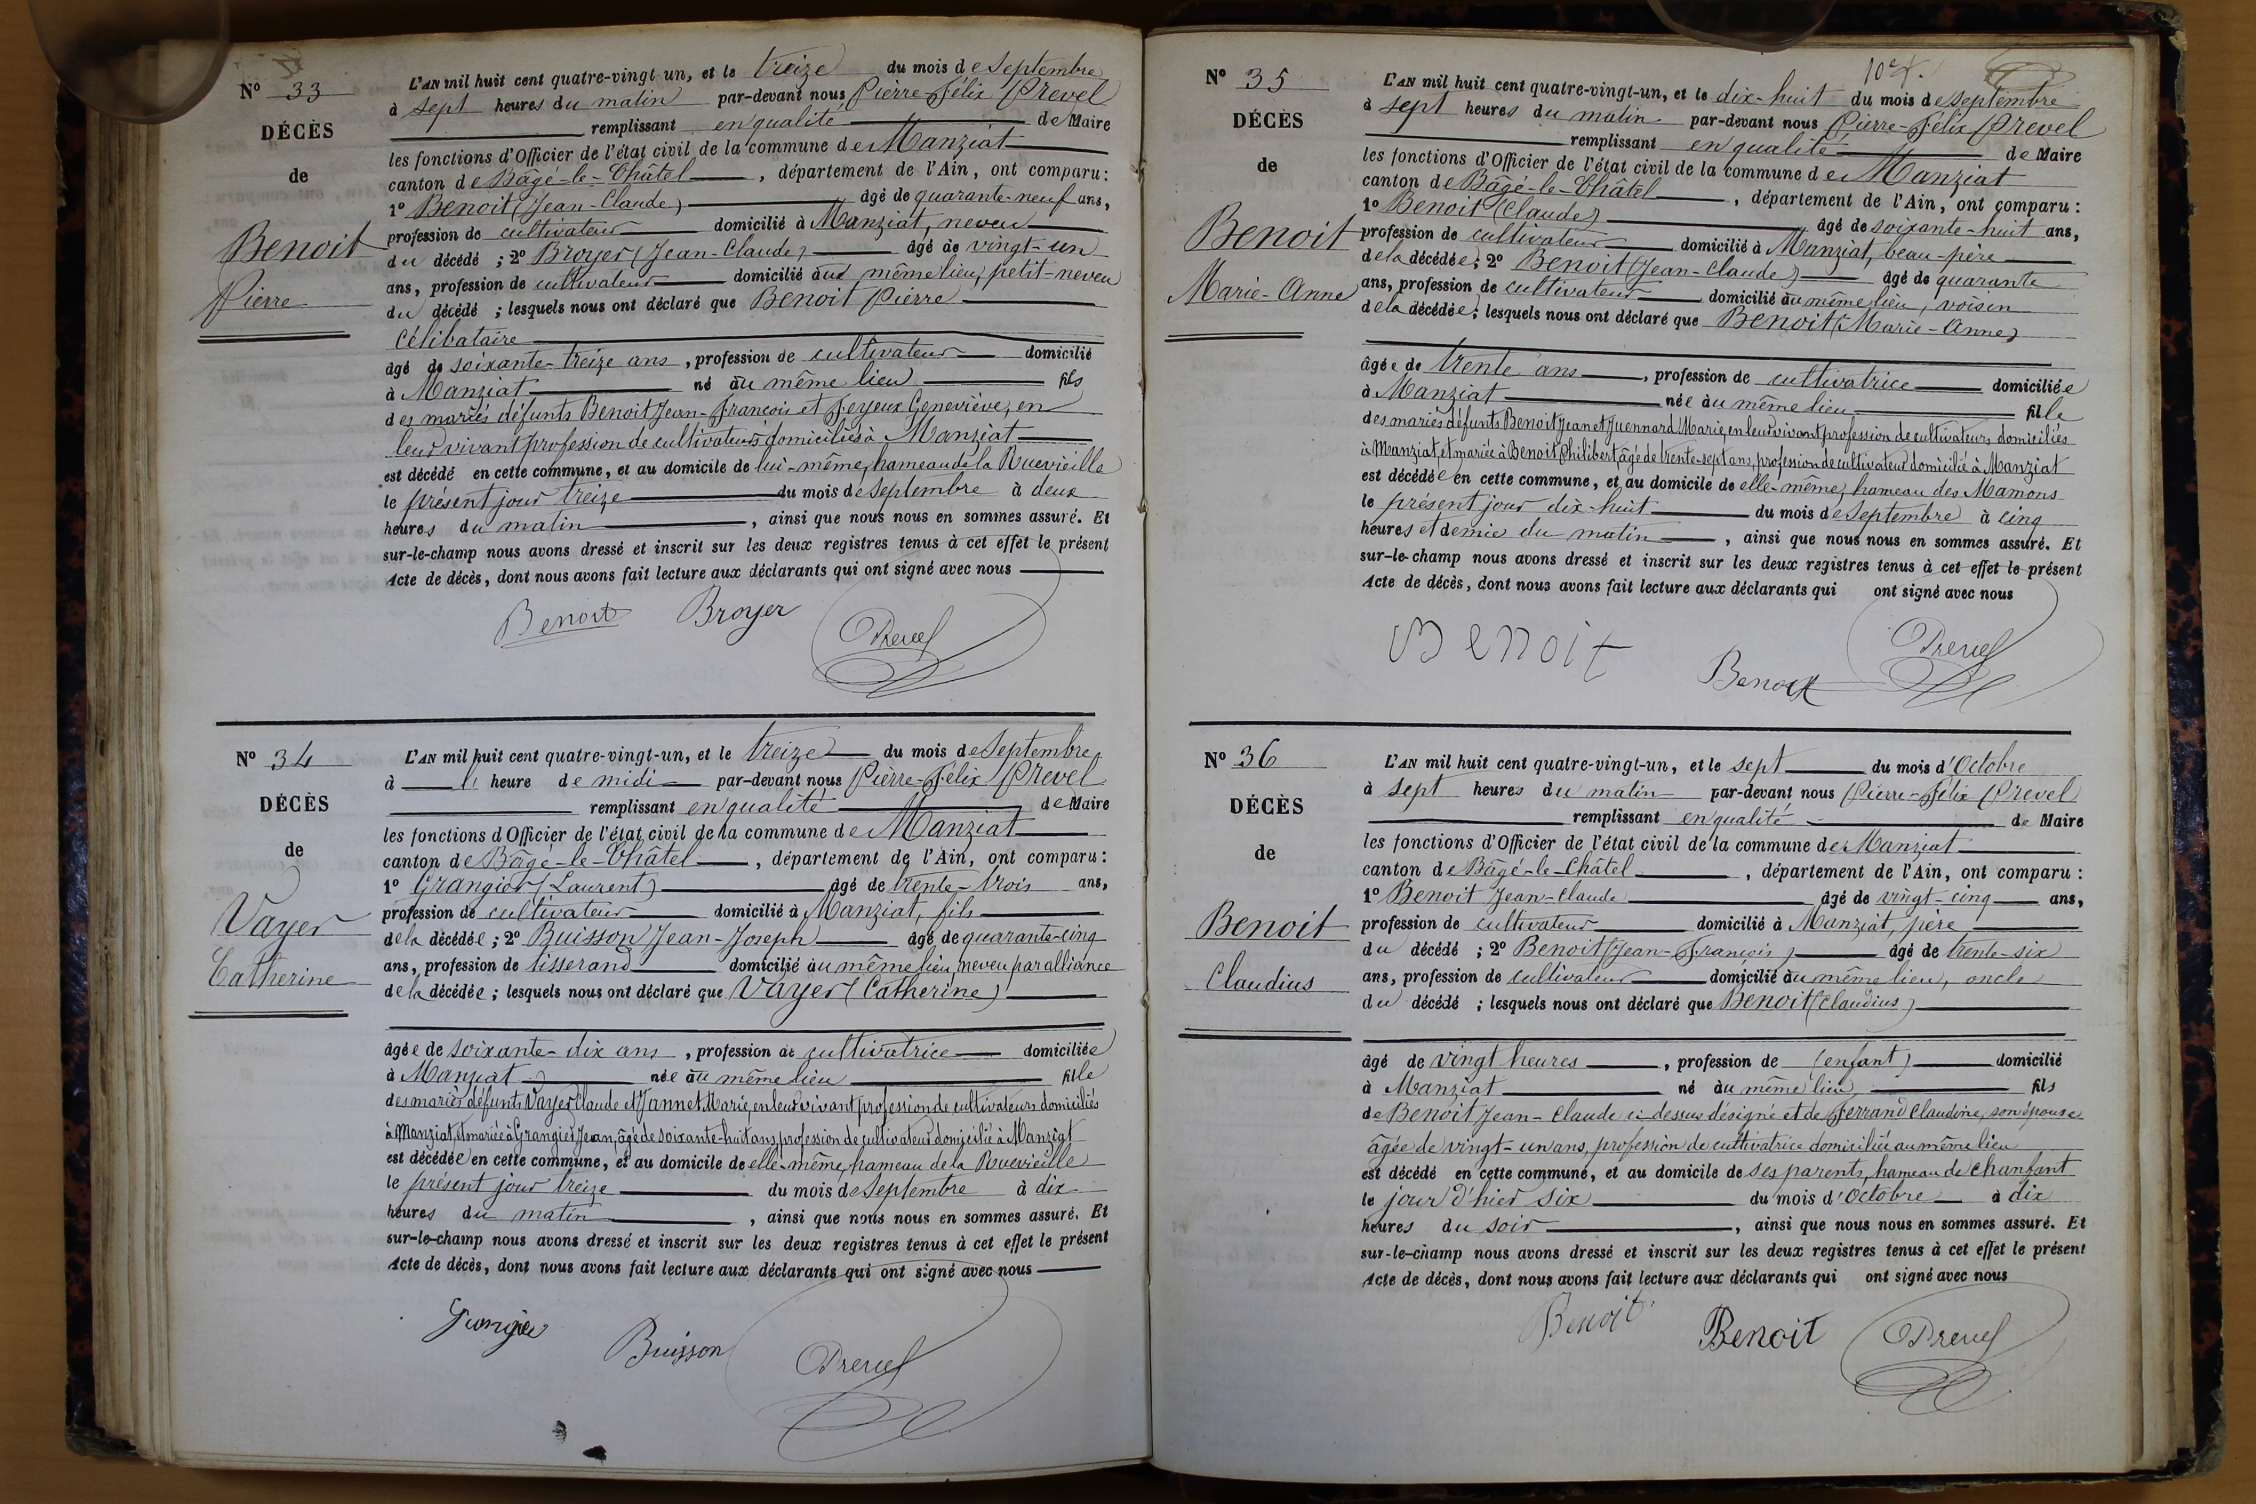 N° 33
DÉCÈS
de
Benoit
Pierre
L'AN mil huit cent quatre-vingt un, et le treize du mois de Septembre
à sept heures du matin par-devant nous Pierre-Félix Prevel
remplissant en qualité de Maire
les fonctions d'Officier de l'état civil de la commune de Manziat
canton de Bâgé-le-Châtel, département de l'Ain, ont comparu:
1° Benoit (Jean-Claude) âgé de quarante-neuf ans,
profession de cultivateur domicilié à Manziat, neveu
du décédé ; 2° Broyer (Jean-Claude) âgé de vingt-un
ans, profession de cultivateur domicilié au même lieu, petit-neveu
du décédé ; lesquels nous ont déclaré que Benoit Pierre
Célibataire
âgé de soixante-treize ans, profession de cultivateur domicilié
à Manziat né au même lieu fils
des mariés défunts Benoit Jean-François et Feyeux Geneviève, en
leur vivant profession de cultivateurs domiciliés à Manziat
est décédé en cette commune, et au domicile de lui-même, hameau de la Ruevieille
le présent jour treize du mois de Septembre à deux
heures du matin, ainsi que nous nous en sommes assuré. Et
sur-le-champ nous avons dressé et inscrit sur les deux registres tenus à cet effet le présent
Acte de décès, dont nous avons fait lecture aux déclarants qui ont signé avec nous
Benoit Broyer Prevel
N° 34
DÉCÈS
de
Vayer
Catherine
L'AN mil huit cent quatre-vingt-un, et le treize du mois de Septembre
à l' heure de midi par-devant nous Pierre-Félix Prevel
remplissant en qualité de Maire
les fonctions d'Officier de l'état civil de la commune de Manziat
canton de Bâgé-le-Châtel, département de l'Ain, ont comparu:
1° Grangier (Laurent) âgé de trente-trois ans,
profession de cultivateur domicilié à Manziat, fils
de la décédée ; 2° Buisson Jean-Joseph âgé de quarante-cinq
ans, profession de tisserand domicilié au même lieu, neveu par alliance
de la décédée ; lesquels nous ont déclaré que Vayer (Catherine)
âgée de soixante-dix ans, profession de cultivatrice domiciliée
à Manziat née au même lieu fille
des mariés défunts Vayer Claude et Jannet Marie, en leur vivant profession de cultivateurs domiciliés
à Manziat, et mariée à Grangier Jean, âgé de soixante-huit ans, profession de cultivateur domicilié à Manziat
est décédée en cette commune, et au domicile de elle-même, hameau de la Ruevieille
le présent jour treize du mois de Septembre à dix
heures du matin, ainsi que nous nous en sommes assuré. Et
sur-le-champ nous avons dressé et inscrit sur les deux registres tenus à cet effet le présent
Acte de décès, dont nous avons fait lecture aux déclarants qui ont signé avec nous
Grangier Buisson Prevel
N° 35
DÉCÈS
de
Benoit
Marie-Anne
L'AN mil huit cent quatre-vingt-un, et le dix-huit du mois de Septembre
à sept heures du matin par-devant nous Pierre-Félix Prevel
remplissant en qualité de Maire
les fonctions d'Officier de l'état civil de la commune de Manziat
canton de Bâgé-le-Châtel, département de l'Ain, ont comparu :
1° Benoit (Claude) âgé de soixante-huit ans,
profession de cultivateur domicilié à Manziat, beau-père
de la décédée ; 2° Benoit (Jean-Claude) âgé de quarante
ans, profession de cultivateur domicilié au même lieu, voisin
de la décédée ; lesquels nous ont déclaré que Benoit (Marie-Anne)
âgée de trente ans, profession de cultivatrice domiciliée
à Manziat née au même lieu fille
des mariés défunts Benoit Jean et Juennard Marie, en leur vivant profession de cultivateurs domiciliés
à Manziat, et mariée à Benoit Philibert, âgé de trente-sept ans, profession de cultivateur domicilié à Manziat
est décédée en cette commune, et au domicile de elle-même, hameau des Mamons
le présent jour dix-huit du mois de Septembre à cinq
heures et demie du matin, ainsi que nous nous en sommes assuré. Et
sur-le-champ nous avons dressé et inscrit sur les deux registres tenus à cet effet le présent
Acte de décès, dont nous avons fait lecture aux déclarants qui ont signé avec nous
Benoit Benoit Prevel
N° 36
DÉCÈS
de
Benoit
Claudius
L'AN mil huit cent quatre-vingt-un, et le sept du mois d'Octobre
à sept heures du matin par-devant nous Pierre-Félix Prevel
remplissant en qualité de Maire
les fonctions d'Officier de l'état civil de la commune de Manziat
canton de Bâgé-le-Châtel, département de l'Ain, ont comparu :
1° Benoit Jean-Claude âgé de vingt-cinq ans,
profession de cultivateur domicilié à Manziat, père
du décédé ; 2° Benoit (Jean-François) âgé de trente-six
ans, profession de cultivateur domicilié au même lieu, oncle
du décédé ; lesquels nous ont déclaré que Benoit (Claudius)
âgé de vingt heures, profession de (enfant) domicilié
à Manziat né au même lieu fils
de Benoit Jean-Claude ci-dessus désigné et de Ferrand Claudine, son épouse
âgée de vingt-un ans, profession de cultivatrice domiciliée au même lieu
est décédé en cette commune, et au domicile de ses parents, hameau de Chanfant
le jour d'hier six du mois d'Octobre à dix
heures du soir, ainsi que nous nous en sommes assuré. Et
sur-le-champ nous avons dressé et inscrit sur les deux registres tenus à cet effet le présent
Acte de décès, dont nous avons fait lecture aux déclarants qui ont signé avec nous
Benoit Benoit Prevel